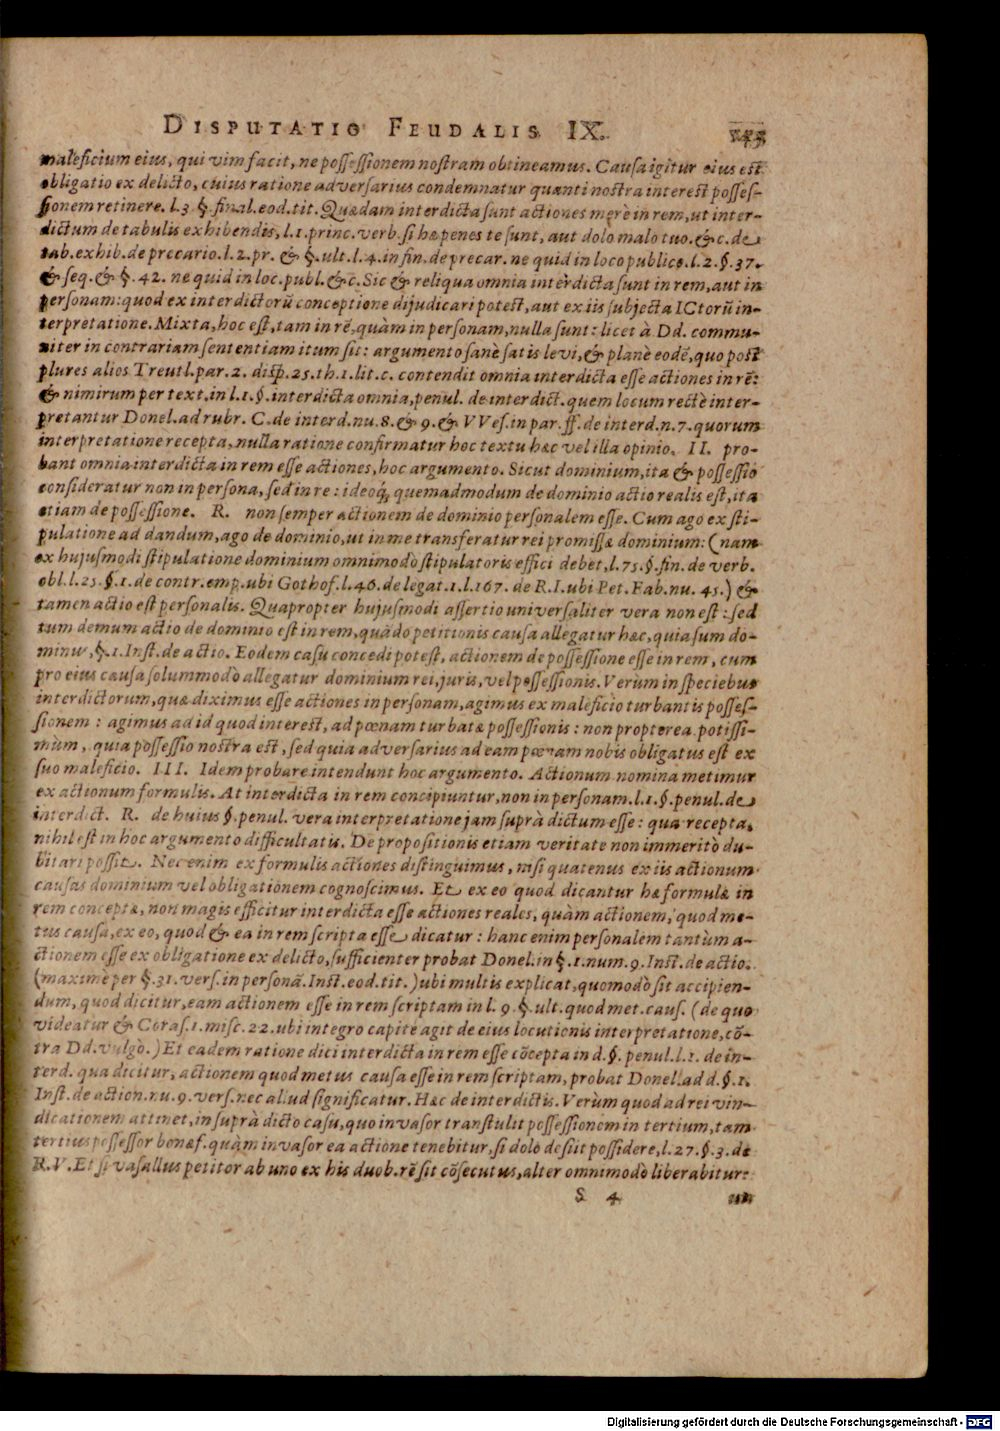 DISPUTATIO FEUDALIS IX.
maleficium eius, qui vim facit, ne possessionem nostram obtineamus. Causa igitur eius est
obligatio ex delicto, cuius ratione adversarius condemnatur quanti nostra interest posses-
sionem retinere. l.3 §. final. eod. tit. Quædam interdicta sunt actiones merè in rem, ut inter-
dictum de tabulis exhibendis, l.1. princ. verb. si hæ penes te sunt, aut dolo malo tuo. &c. de
tab. exhib. de precario. l.2. pr. & §. ult. l.4. in fin. de precar. ne quid in loco publico. l.2. §. 37.
& seq. & §. 42. ne quid in loc. publ. &c. Sic & reliqua omnia interdicta sunt in rem, aut in
personam: quod ex interdictorũ conceptione dijudicari potest, aut ex iis subjecta ICtorũ in-
terpretatione. Mixta, hoc est, tam in rẽ, quàm in personam, nulla sunt: licet à Dd. commu-
niter in contrariam sententiam itum sit: argumento sanè satis levi, & planè eodẽ, quo post
plures alios Treutl. par. 2. disp. 25. th. 1. lit. c. contendit omnia interdicta esse actiones in rẽ:
& nimirum per text. in l.1. §. interdicta omnia, penul. de interdict. quem locum rectè inter-
pretantur Donel. ad rubr. C. de interd. nu. 8. & 9. & VVes. in par. ff. de interd. n. 7. quorum
interpretatione recepta, nulla ratione confirmatur hoc textu hæc vel illa opinio. II. pro-
bant omnia interdicta in rem esse actiones, hoc argumento. Sicut dominium, ita & possessio
consideratur non in persona, sed in re: ideoq́, quemadmodum de dominio actio realis est, ita
etiam de possessione. R. non semper actionem de dominio personalem esse. Cum ago ex sti-
pulatione ad dandum, ago de dominio, ut in me transferatur rei promissæ dominium: (nam
ex hujusmodi stipulatione dominium omnimodò stipulatoris effici debet, l.75. §. fin. de verb.
obl. l.25. §. 1. de contr. emp. ubi Gothof. l.46. de legat. 1. l.167. de R.I. ubi Pet. Fab. nu. 45.) &
tamen actio est personalis. Quapropter hujusmodi assertio universaliter vera non est: sed
tum demum actio de dominio est in rem, quãdo petitionis causa allegatur hæc, quia sum do-
minus, §. 1. Inst. de actio. Eodem casu concedi potest, actionem de possessione esse in rem, cum
pro eius causa solummodò allegatur dominium rei, juris, vel possessionis. Verùm in speciebus
interdictorum, quæ diximus esse actiones in personam, agimus ex maleficio turbantis posses-
sionem: agimus ad id quod interest, ad pœnam turbatæ possessionis: non propterea potissi-
mùm, quia possessio nostra est, sed quia adversarius ad eam pœnam nobis obligatus est ex
suo maleficio. III. Idem probare intendunt hoc argumento. Actionum nomina metimur
ex actionum formulis. At interdicta in rem concipiuntur, non in personam. l.1. §. penul. de
interdict. R. de huius §. penul. vera interpretatione jam suprà dictum esse: qua recepta,
nihil est in hoc argumento difficultatis. De propositionis etiam veritate non immeritò du-
bitari possit. Nec enim ex formulis actiones distinguimus, nisi quatenus ex iis actionum
causas dominium vel obligationem cognoscimus. Et ex eo quod dicantur hæ formulæ in
rem conceptæ, non magis efficitur interdicta esse actiones reales, quàm actionem, quod me-
tus causa, ex eo, quod & ea in rem scripta esse dicatur: hanc enim personalem tantùm a-
ctionem esse ex obligatione ex delicto, sufficienter probat Donel. in §. 1. num. 9. Inst. de actio.
(maximè per §. 31. vers. in personã. Inst. eod. tit.) ubi multis explicat, quomodò sit accipien-
dum, quod dicitur, eam actionem esse in rem scriptam in l. 9. §. ult. quod met. caus. (de quo
videatur & Coras. 1. misc. 22. ubi integro capite agit de eius locutionis interpretatione, cõ-
tra Dd. vulgò.) Et eadem ratione dici interdicta in rem esse cõcepta in d. §. penul. l.1. de in-
terd. qua dicitur, actionem quod metus causa esse in rem scriptam, probat Donel. ad d. §. 1.
Inst. de action. nu. 9. vers. nec aliud significatur. Hæc de interdictis. Verùm quod ad rei vin-
dicationem attinet, in suprà dicto casu, quo invasor transtulit possessionem in tertium, tam
tertius possessor bonæ f. quàm invasor ea actione tenebitur, si dolo desiit possidere, l.27. §. 3. de
R.V. Et si vasallus petitor ab uno ex his duob. rẽ sit cõsecutus, alter omnimodò liberabitur:
S 4
Digitalisierung gefördert durch die Deutsche Forschungsgemeinschaft - DFG